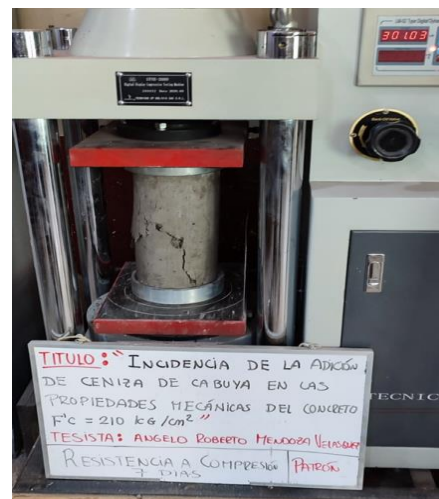 301.03
TITULO: "INCIDENCIA DE LA ADICIÓN
DE CENIZA DE CABUYA EN LAS
PROPIEDADES MECÁNICAS DEL CONCRETO
F'c = 210 kG/cm² "
TESISTA: ANGELO ROBERTO MENDOZA VELASQUEZ
RESISTENCIA A COMPRESIÓN
7 DIAS
PATRÓN
TECNIC